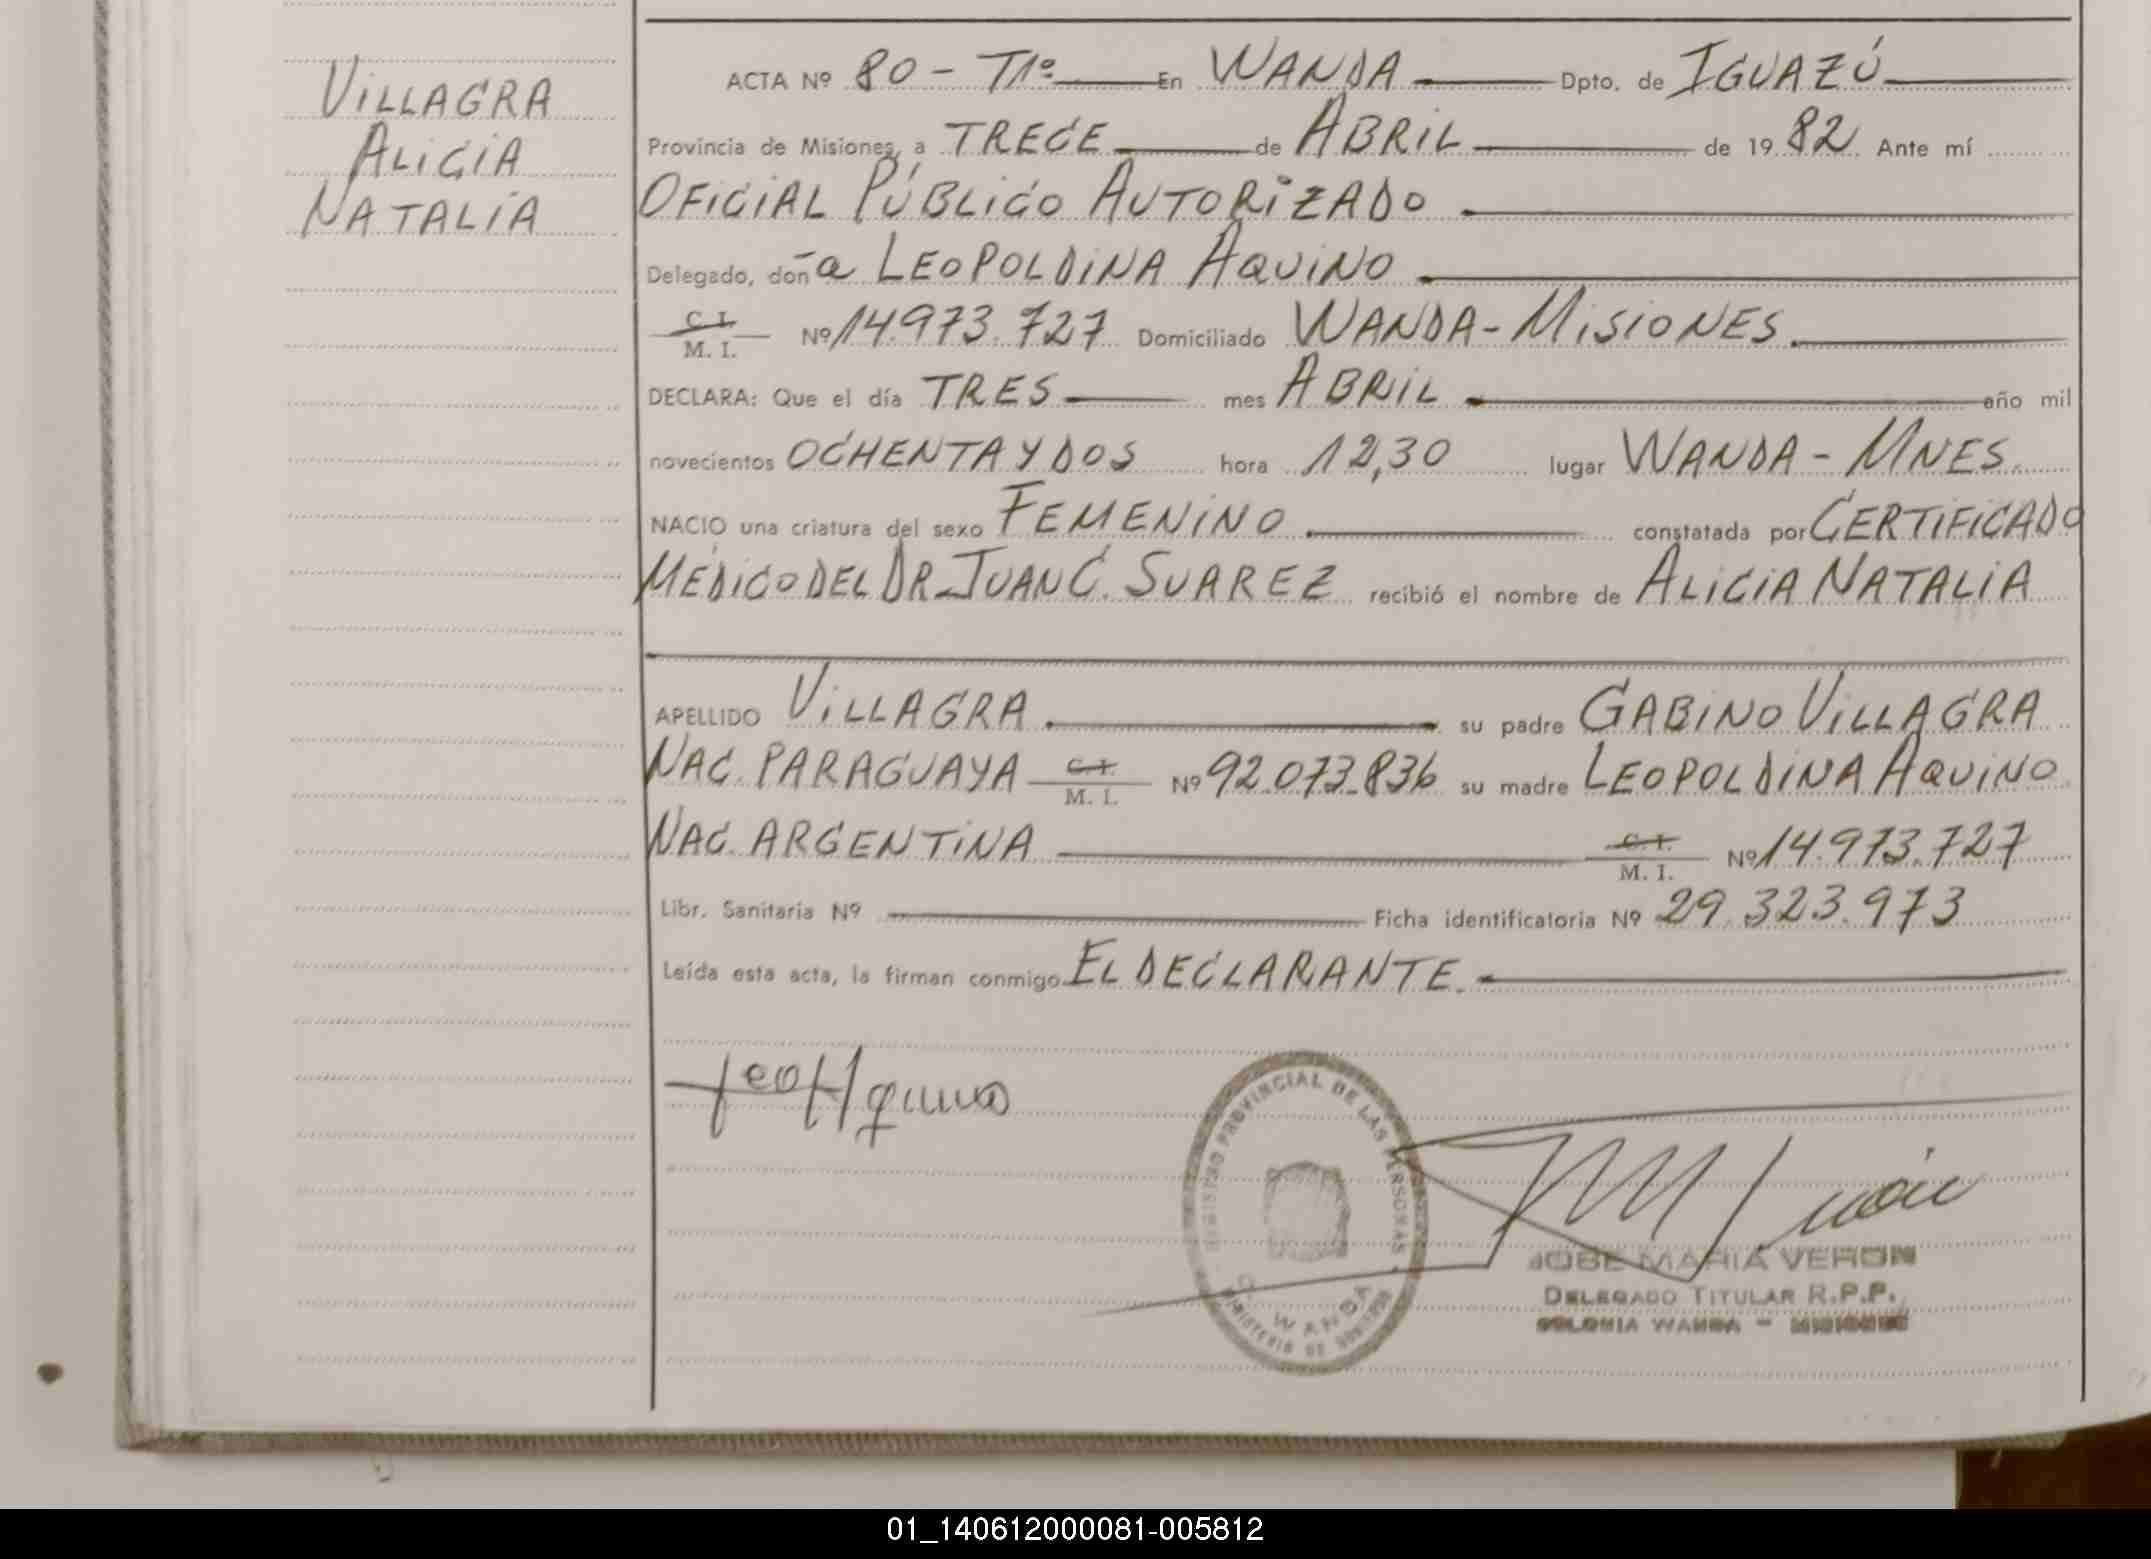 VILLAGRA
ALICIA
NATALIA
ACTA Nº 80 - Tº1º En WANDA Dpto. de IGUAZÚ
Provincia de Misiones, a TRECE de ABRIL de 1982 Ante mí
OFICIAL PÚBLICO AUTORIZADO
Delegado, doña LEOPOLDINA AQUINO
C. I. / M. I. Nº 14.973.727 Domiciliado WANDA - MISIONES.
DECLARA: Que el día TRES mes ABRIL año mil
novecientos OCHENTA Y DOS hora 12,30 lugar WANDA - MNES.
NACIO una criatura del sexo FEMENINO constatada por CERTIFICADO
MÉDICO DEL DR. JUAN C. SUAREZ recibió el nombre de ALICIA NATALIA
APELLIDO VILLAGRA su padre GABINO VILLAGRA
NAC. PARAGUAYA C. I. / M. I. Nº 92.073.836 su madre LEOPOLDINA AQUINO
NAC. ARGENTINA C. I. / M. I. Nº 14.973.727
Libr. Sanitaria Nº Ficha identificatoria Nº 29.323.973
Leída esta acta, la firman conmigo EL DECLARANTE.
Leo Aquino
REGISTRO PROVINCIAL DE LAS PERSONAS
WANDA
MINISTERIO DE GOBIERNO
JOSE MARIA VERON
DELEGADO TITULAR R.P.P.
COLONIA WANDA - MISIONES
01_140612000081-005812